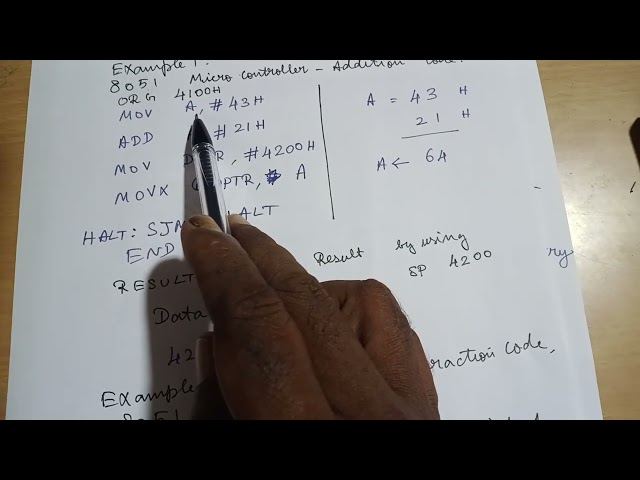 Example 1.
8051 Micro controller - Addition code.
ORG 4100H
MOV A, #43H
ADD #21H
MOV , #4200H
MOVX PTR, A
HALT: SJM ALT
END
A = 43 H
21 H
A ← 64
Result by using
SP 4200
RESULT
Data
42
Example
raction code,
8051